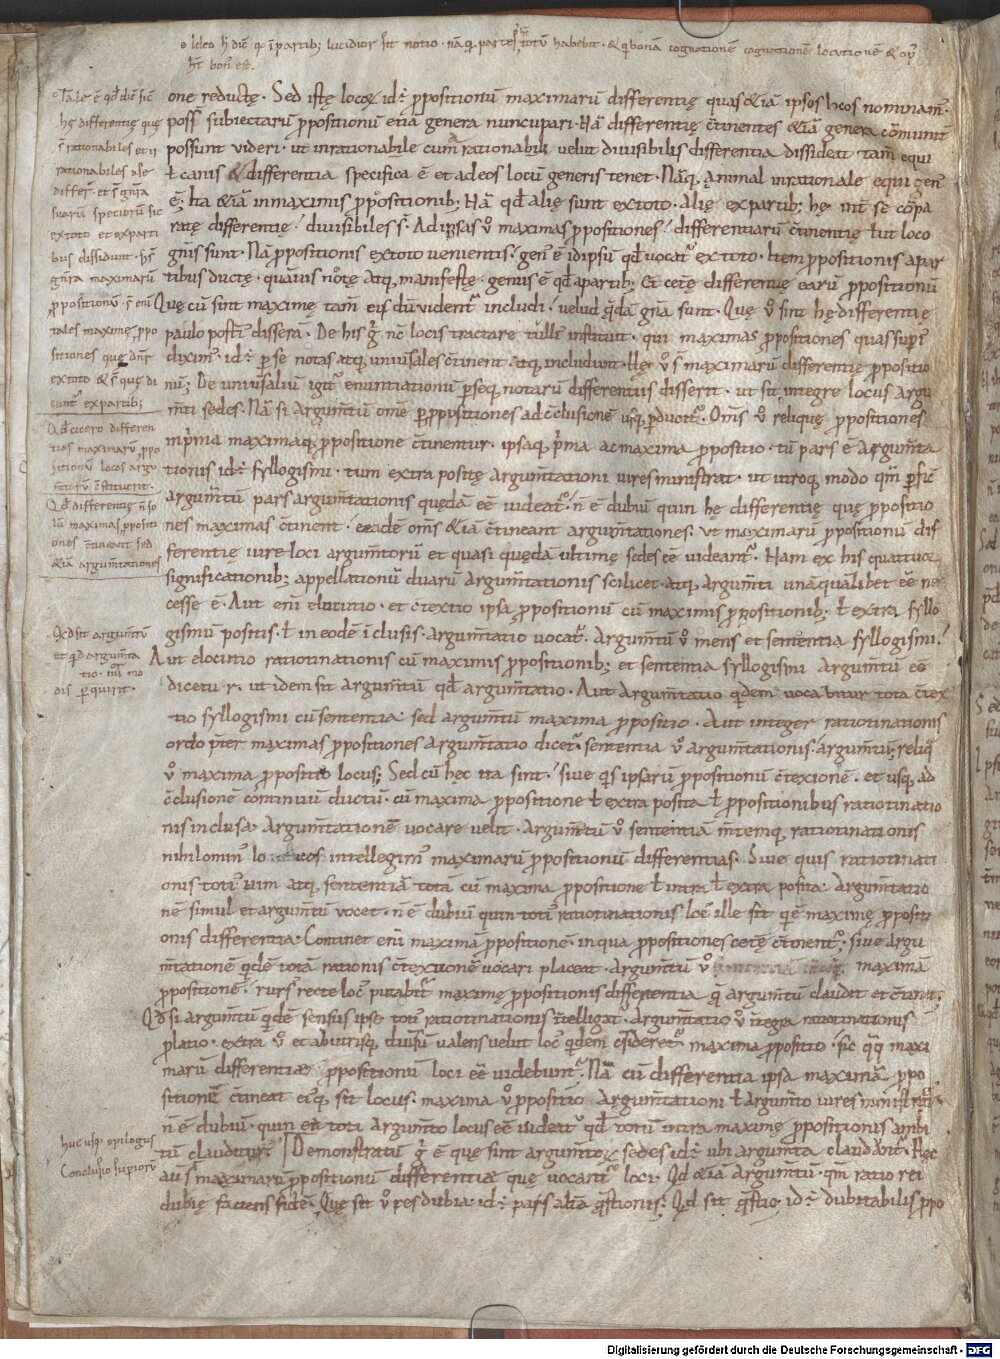 one reductę. Sed istę locoꝝ id ÷ ꝓpositionū maximarū differentię quas & iā ipsos locos nominam᷒.
poss̄ subiectarū ꝓpositionū etiā genera nuncupari. Nā differentię c̄tinentes & iā genera com̄unit̄
possunt videri. ut inrationabile cum rationabili velut diuisibilis differentia dissideat tam̄ equi
ł canis & differentia specifica ē et ad eos locū generis tenet. Nāq; animal inrationale equi gen᷒
ē; Ita & iā in maximis ꝓpositionib; Nā qđ alię sunt ex toto. alię ex partib; hę int̄ se cōpa
ratę differentię diuisibiles s̄. Ad ipsas v̊ maximas ꝓpositiones differentiarū c̄tinentię ł ut loco
gn̄is sunt. Nā ꝓpositionis ex toto uenientis. gen᷒ ē id ipsū qđ vocat᷒ ex toto. Item ꝓpositionis a par
tibus ductę. quāuis notę atq, manifestę. genus ē qđ a partib; Et cetę differentię earū ꝓpositionū
Quę cū sint maximę tam̄ eis dū vident᷒ includi. velud q̄dā gn̄a sunt. Quę v̊ sint hę differentię
paulo post᷒ disserā. De his g̊ nc̄ locis tractare tulli᷒ instituit. qui maximas ꝓpositiones quas sup᷒
dixim᷒. id ÷ per se notas atq, uniuersales c̄tinent atq, includunt. Hę v̊ s̄ maximarū differentię ꝓpositio
nū; De uniuersaliū igit᷒ enuntiationū per seq, notarū differentiis disserit. ut sit integre locus argu
m̄ti sedes. Nā si argum̄tū om̄e per ꝓpositiones ad c̄clusionē usq, ꝑducit᷒. Om̄s v̊ reliquę ꝓpositiones
in p̄ma maximaq, ꝓpositione c̄tinentur. ipsaq, p̄ma ac maxima ꝓpositio. tū pars ē argum̄ta
tionis id ÷ syllogismi. tum extra positę argum̄tationi uires ministrat. ut utroq, modo
argum̄tū pars argum̄tationis quędā eē uideat᷒. n̄ ē dubiū quin hę differentię quę ꝓpositio
nes maximas c̄tinent. eędē om̄s & iā c̄tineant argum̄tationes. Vt maximarū ꝓpositionū dif
ferentię iure loci argum̄torū et quasi quędā ultimę sedes eē videant᷒. Nam ex his quattuor
significationib; appellationū duarū argum̄tationis scilicet atq, argum̄ti unā qualibet eē ne
cesse ē. Aut enī elocutio. et c̄textio ipsa ꝓpositionū cū maximis ꝓpositionib; ł extra syllo
gismū positis. ł in eodē īclusis. argum̄tatio vocat᷒. Argum̄tū v̊ mens et sententia syllogismi.
Aut elocutio ratiotinationis cū maximis ꝓpositionib; et sententia syllogismi argum̄tū
dicetur. ut idem sit argum̄tū qđ argum̄tatio. Aut argum̄tatio q̄dem vocabitur tota c̄tex
tio syllogismi cū sententia. sed argum̄tū maxima ꝓpositio. Aut integer ratiotinationis
ordo p̄ter maximas ꝓpositiones argum̄tatio dicet᷒. sententia v̊ argum̄tationis argum̄tū. reliq̄
v̊ maxima ꝓpositio locus; Sed cū hęc ita sint. siue q̄s ipsarū ꝓpositionū c̄textionē. et usq, ad
c̄clusionē continuū ductū. cū maxima ꝓpositione ł extra posita ł ꝓpositionibus ratiotinatio
nis inclusa. argum̄tationē vocare velit. argum̄tū v̊ sententiā m̄temq, ratiotinationis
nihilomin᷒ locos intellegim᷒ maximarū ꝓpositionū differentias. Siue quis ratiotinati
onis toti᷒ uim atq, sententiā totā cū maxima ꝓpositione ł intra ł extra posita. argum̄tatio
nē simul et argum̄tū vocet. n̄ ē dubiū quin toti᷒ ratiotinationis loc᷒ ille sit q̄ ē maximę ꝓpositi
onis differentia. Continet enī maximā ꝓpositionē. in qua ꝓpositiones cetę c̄tinent᷒. siue argu
m̄tationē q̄dē totā rationis c̄textionē vocari placeat. argum̄tū v̊ maximā
ꝓpositionē. rurs᷒ recte loc᷒ putabit᷒ maximę ꝓpositionis differentia q̄ argum̄tū claudit et c̄tinet.
Qđ si argum̄tū q̄dē sensus ipse toti᷒ ratiotinationis intelligat᷒. argum̄tatio v̊ integra ratiotinationis
ꝓlatio. extra v̊ et ab utrisq, diuisū valens velut loc᷒ q̄dem c̄sideret᷒ maxima ꝓpositio. sic q̄q, maxi
marū differentiae ꝓpositionū loci eē uidebunt᷒. Nā cū differentia ipsa maximā ꝓpo
sitionē c̄tineat ei᷒q, sit locus. maxima v̊ ꝓpositio argum̄tationi ł argum̄to uires ministret.
n̄ ē dubiū. quin ea toti argum̄to locus eē uideat᷒ qđ totū intra maximę ꝓpositionis ambi
tū clauditur. Demonstratū g̊ ē quę sint argum̄toꝝ sedes id ÷ ubi argum̄ta claudant᷒. Hęc
aut̄ s̄ maximarū ꝓpositionū differentiae quę vocant᷒ loci. Qđ & iā argum̄tū. qm̄ ratio rei
dubię faciens fidē. Quę sit v̊ res dubia. id ÷ pars alia q̄stionis. Qđ sit q̄stio. id ÷ dubitabilis ꝓpo
hę differentię quę
s̄ rationabiles et ir
rationabiles
suarū specierū sic
ex toto et ex parti
bus dissidunt.
gn̄ra maximarū
ꝓpositionū
tales maximę ꝓpo
sitiones quę dn̄r
ex toto & s̄ quę di
cunt᷒ ex partib;
Qđ cicero differen
tias maximarū ꝓpo
sitionū locos argu
m̄torū c̄stituerit.
Qđ differentię n̄ so
lū maximas ꝓpositi
ones c̄tineant sed
& iā argum̄tationes
Qđ sit argum̄tū
et qđ argum̄ta
tio. mo
dis ꝑquirit.
huc usq, epilogus
Conclusio supiorū
Digitalisierung gefördert durch die Deutsche Forschungsgemeinschaft - DFG